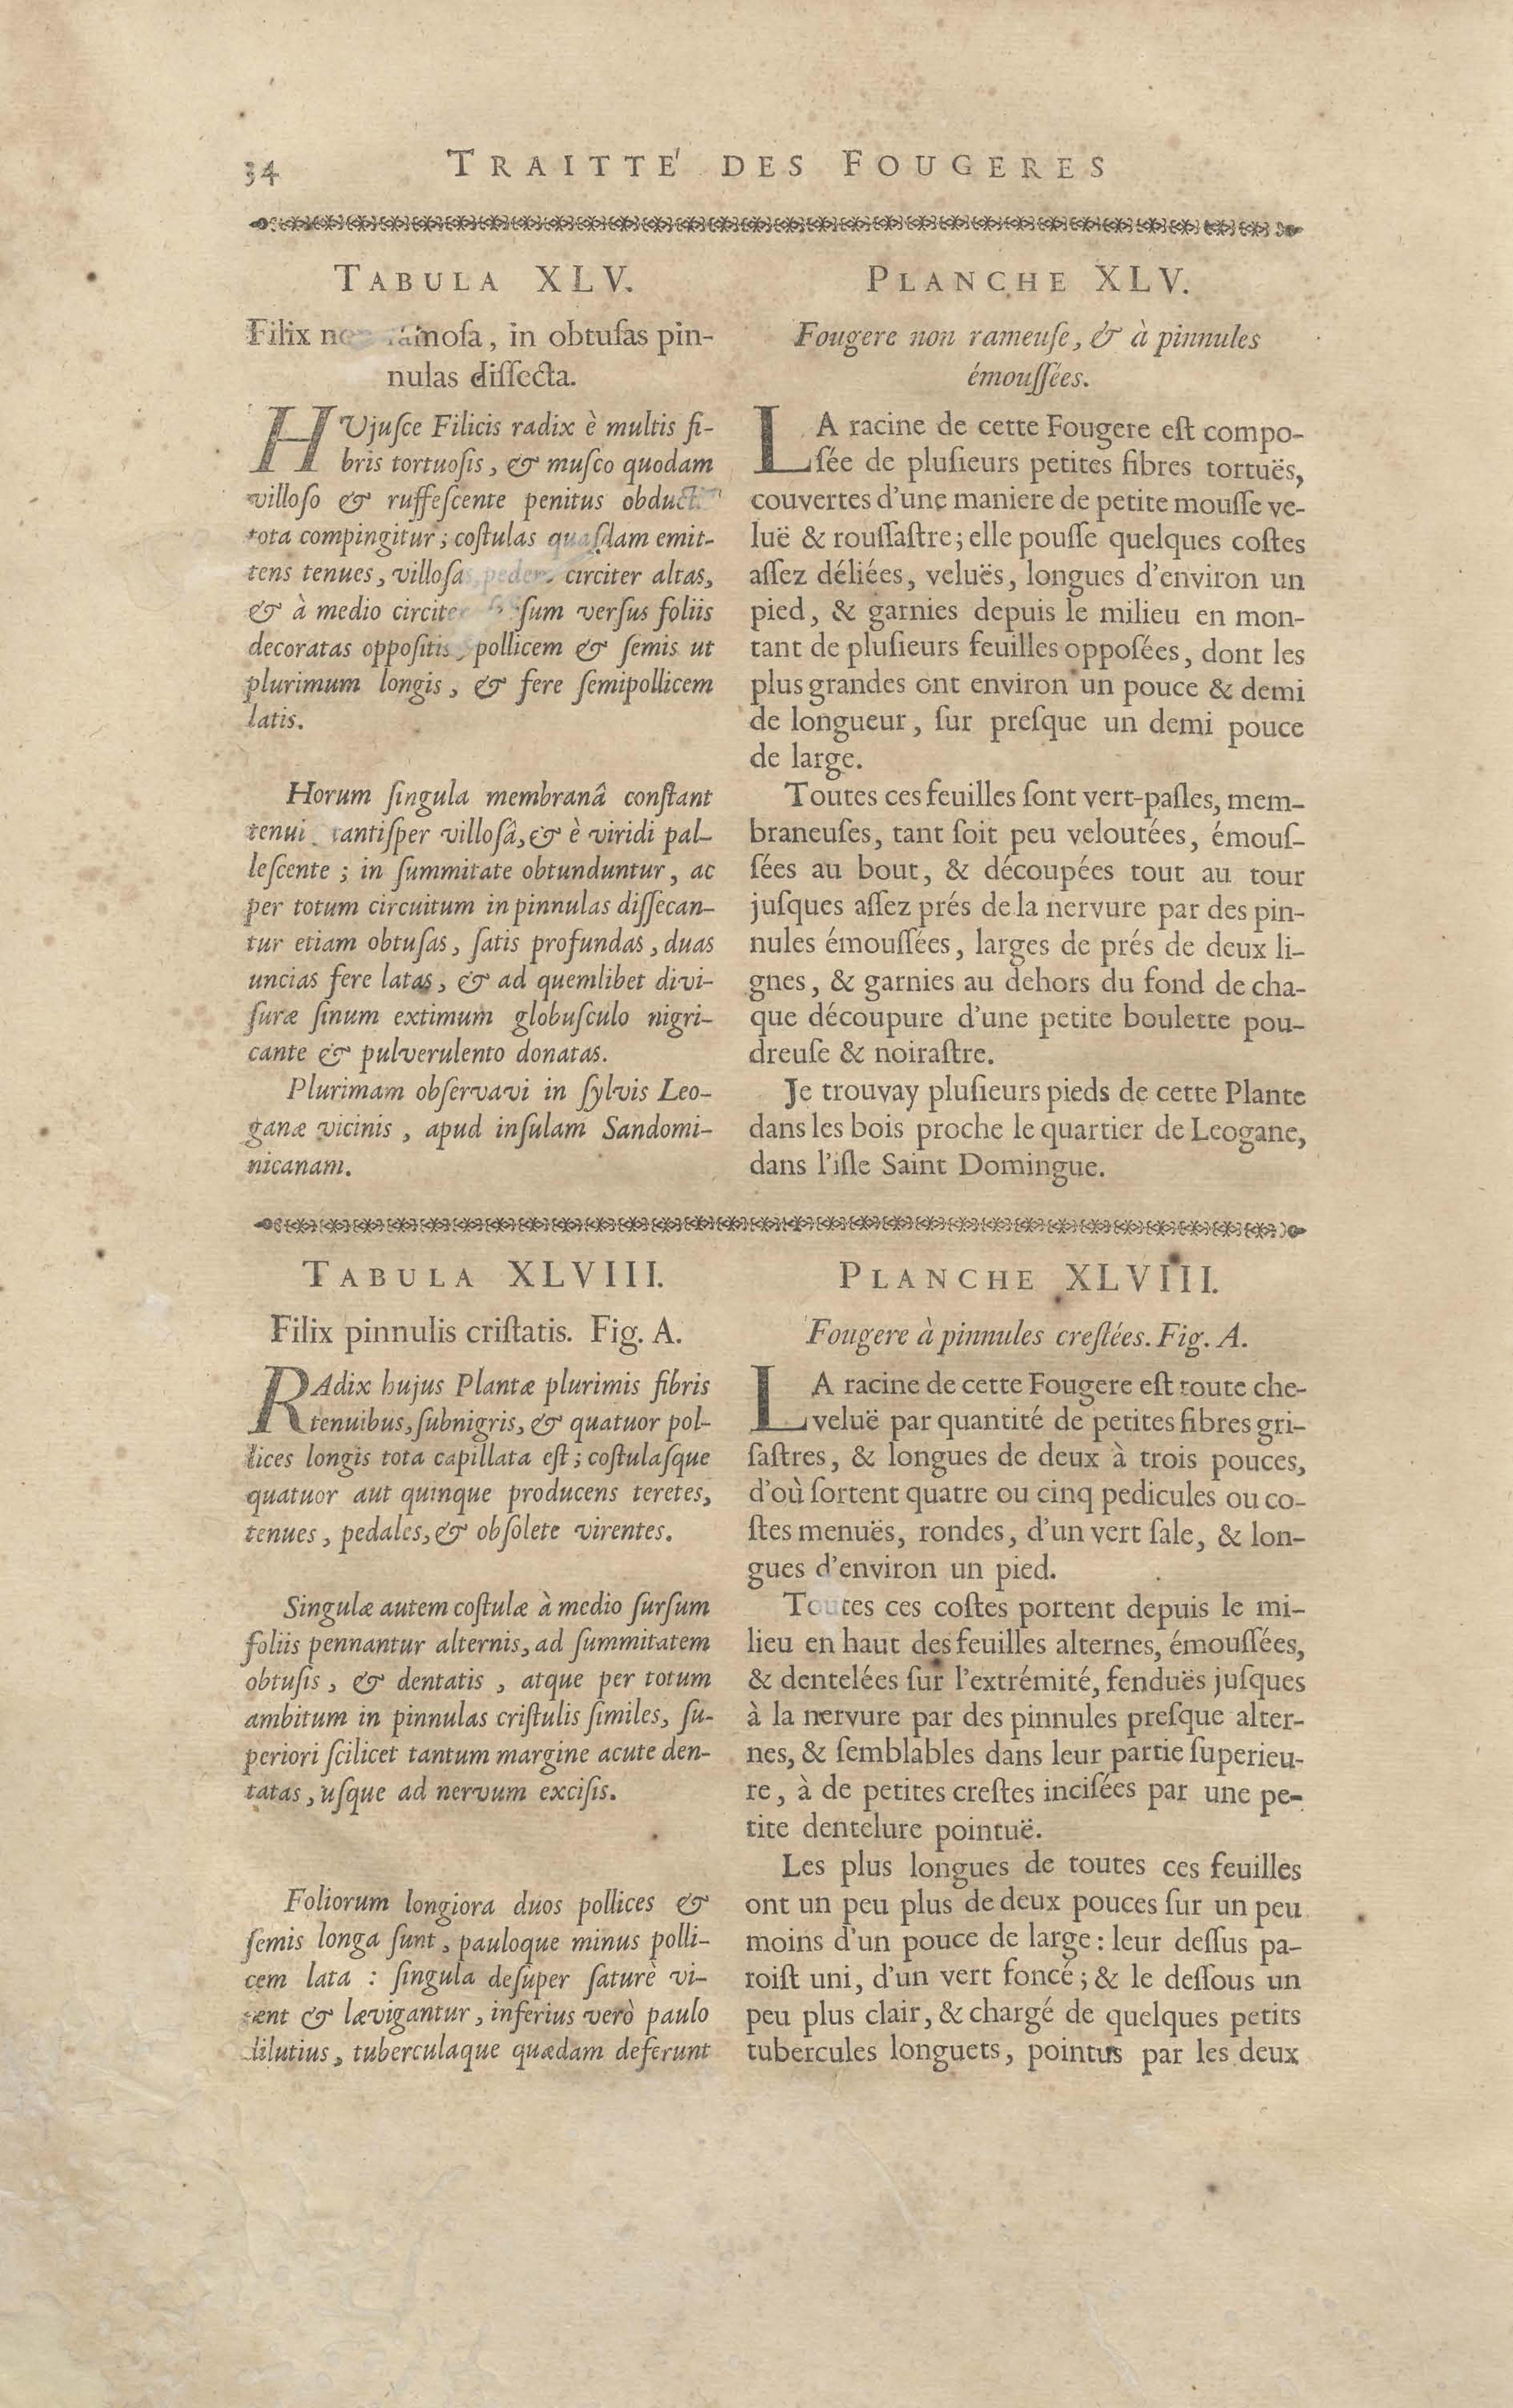 34 TRAITTE' DES FOUGERES
TABULA XLV.
Filix ramosa, in obtusas pin-
nulas dissecta.
HUjusce Filicis radix è multis fi-
bris tortuosis, & musco quodam
villoso & ruffescente penitus
tota compingitur; costulas emit-
tens tenues, circiter altas,
& à medio versus foliis
decoratas oppositis, pollicem & semis ut
plurimum longis, & fere semipollicem
latis.
Horum singula membranâ constant
tenui tantisper villosâ, & è viridi pal-
lescente ; in summitate obtunduntur, ac
per totum circuitum in pinnulas dissecan-
tur etiam obtusas, satis profundas, duas
uncias fere latas, & ad quemlibet divi-
suræ sinum extimum globusculo nigri-
cante & pulverulento donatas.
Plurimam observavi in sylvis Leo-
ganæ vicinis, apud insulam Sandomi-
nicanam.
PLANCHE XLV.
Fougere non rameuse, & à pinnules
émoussées.
LA racine de cette Fougere est compo-
sée de plusieurs petites fibres tortuës,
couvertes d'une maniere de petite mousse ve-
luë & roussastre; elle pousse quelques costes
assez déliées, veluës, longues d'environ un
pied, & garnies depuis le milieu en mon-
tant de plusieurs feuilles opposées, dont les
plus grandes ont environ un pouce & demi
de longueur, sur presque un demi pouce
de large.
Toutes ces feuilles sont vert-pasles, mem-
braneuses, tant soit peu veloutées, émous-
sées au bout, & découpées tout au tour
jusques assez prés de la nervure par des pin-
nules émoussées, larges de prés de deux li-
gnes, & garnies au dehors du fond de cha-
que découpure d'une petite boulette pou-
dreuse & noirastre.
Je trouvay plusieurs pieds de cette Plante
dans les bois proche le quartier de Leogane,
dans l'isle Saint Domingue.
TABULA XLVIII.
Filix pinnulis cristatis. Fig. A.
RAdix hujus Plantæ plurimis fibris
tenuibus, subnigris, & quatuor pol-
lices longis tota capillata est; costulasque
quatuor aut quinque producens teretes,
tenues, pedales, & obsolete virentes.
Singulæ autem costulæ à medio sursum
foliis pennantur alternis, ad summitatem
obtusis, & dentatis, atque per totum
ambitum in pinnulas cristulis similes, su-
periori scilicet tantum margine acute den-
tatas, usque ad nervum excisis.
Foliorum longiora duos pollices &
semis longa sunt, pauloque minus polli-
cem lata : singula desuper saturè vi-
rent & lævigantur, inferius verò paulo
dilutius, tuberculaque quædam deferunt
PLANCHE XLVIII.
Fougere à pinnules crestées. Fig. A.
LA racine de cette Fougere est toute che-
veluë par quantité de petites fibres gri-
sastres, & longues de deux à trois pouces,
d'où sortent quatre ou cinq pedicules ou co-
stes menuës, rondes, d'un vert sale, & lon-
gues d'environ un pied.
Toutes ces costes portent depuis le mi-
lieu en haut des feuilles alternes, émoussées,
& dentelées sur l'extrémité, fenduës jusques
à la nervure par des pinnules presque alter-
nes, & semblables dans leur partie superieu-
re, à de petites crestes incisées par une pe-
tite dentelure pointuë.
Les plus longues de toutes ces feuilles
ont un peu plus de deux pouces sur un peu
moins d'un pouce de large : leur dessus pa-
roist uni, d'un vert foncé ; & le dessous un
peu plus clair, & chargé de quelques petits
tubercules longuets, pointus par les deux